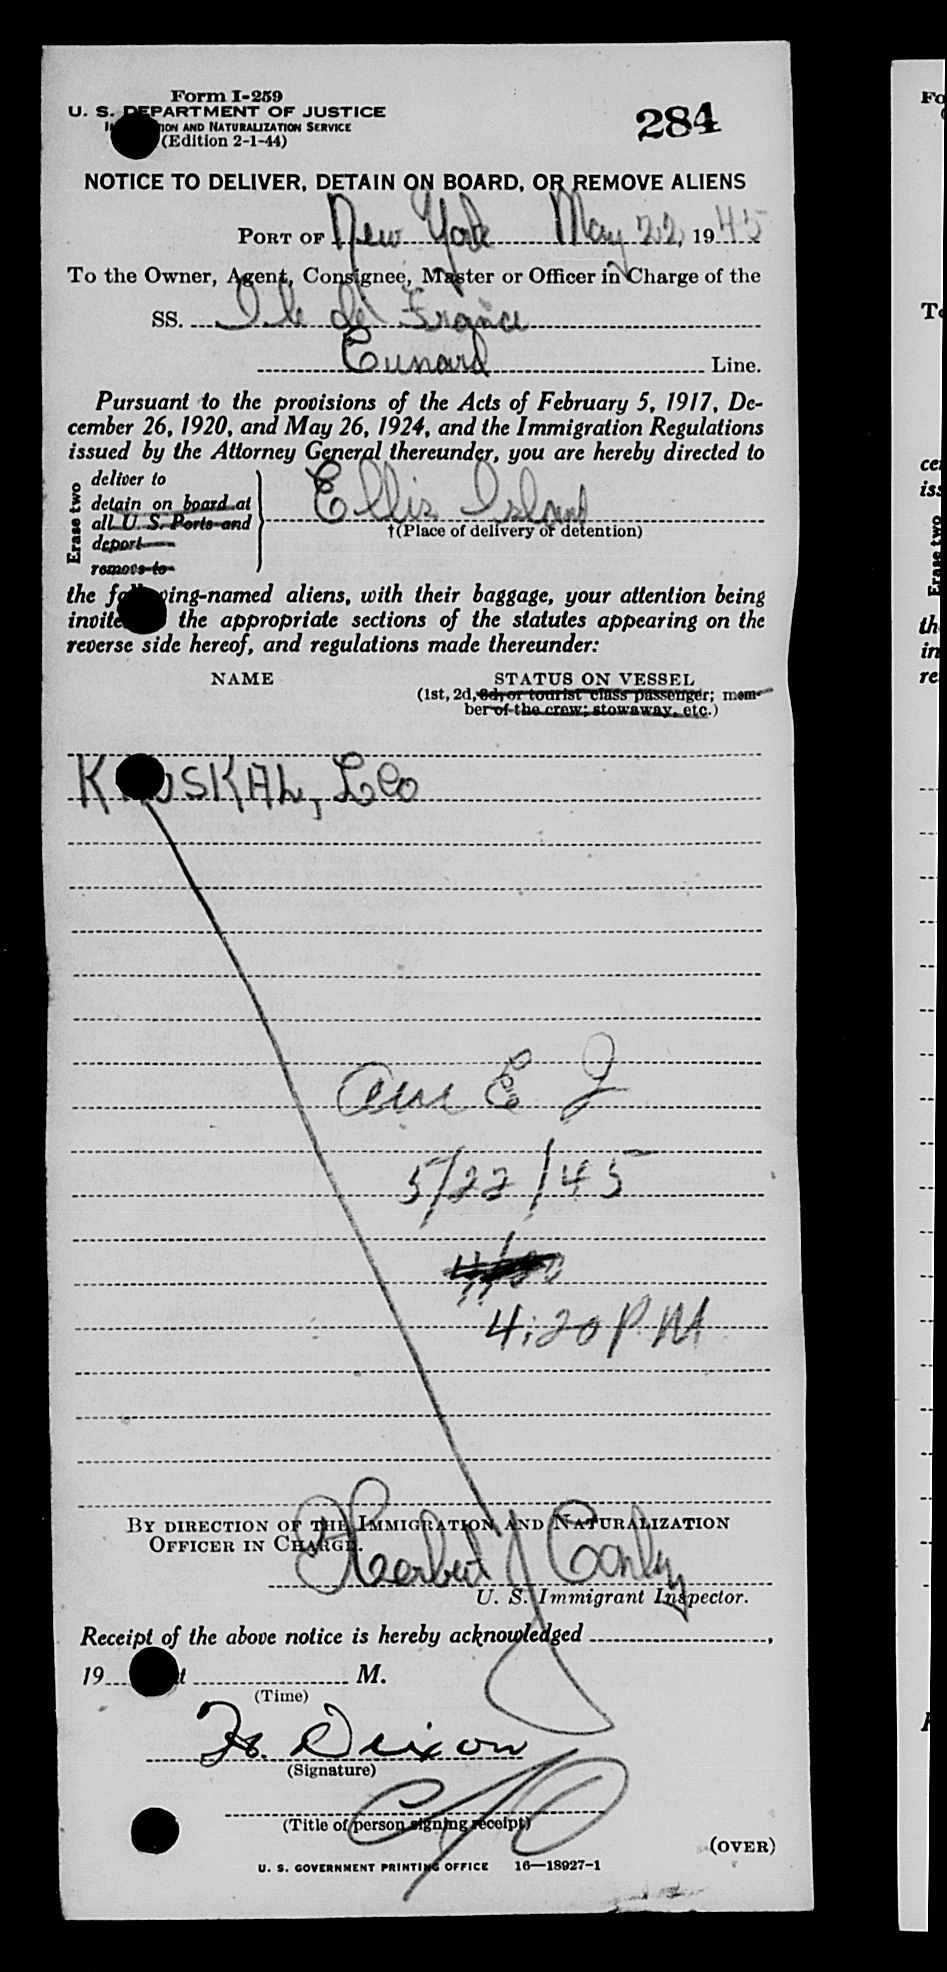 Form I-259
U. S. DEPARTMENT OF JUSTICE
AND NATURALIZATION SERVICE
(Edition 2-1-44)
284
NOTICE TO DELIVER, DETAIN ON BOARD, OR REMOVE ALIENS
PORT OF New York May 22, 1945
To the Owner, Agent, Consignee, Master or Officer in Charge of the
SS. Ile de France
Cunard Line.
Pursuant to the provisions of the Acts of February 5, 1917, De-
cember 26, 1920, and May 26, 1924, and the Immigration Regulations
issued by the Attorney General thereunder, you are hereby directed to
Erase two
deliver to
detain on board at
all U. S. Ports and
deport
remove to
Ellis Island
†(Place of delivery or detention)
the following-named aliens, with their baggage, your attention being
invited the appropriate sections of the statutes appearing on the
reverse side hereof, and regulations made thereunder:
NAME STATUS ON VESSEL
(1st, 2d, 3d, or tourist class passenger; mem-
ber of the crew; stowaway, etc.)
Leo
5/22/45
4:20 PM
BY DIRECTION OF THE IMMIGRATION AND NATURALIZATION
OFFICER IN CHARGE.
Herbert J Conley
U. S. Immigrant Inspector.
Receipt of the above notice is hereby acknowledged ,
19 M.
(Time)
H. Dixon
(Signature)
(Title of person signing receipt)
(OVER)
U. S. GOVERNMENT PRINTING OFFICE 16—18927-1